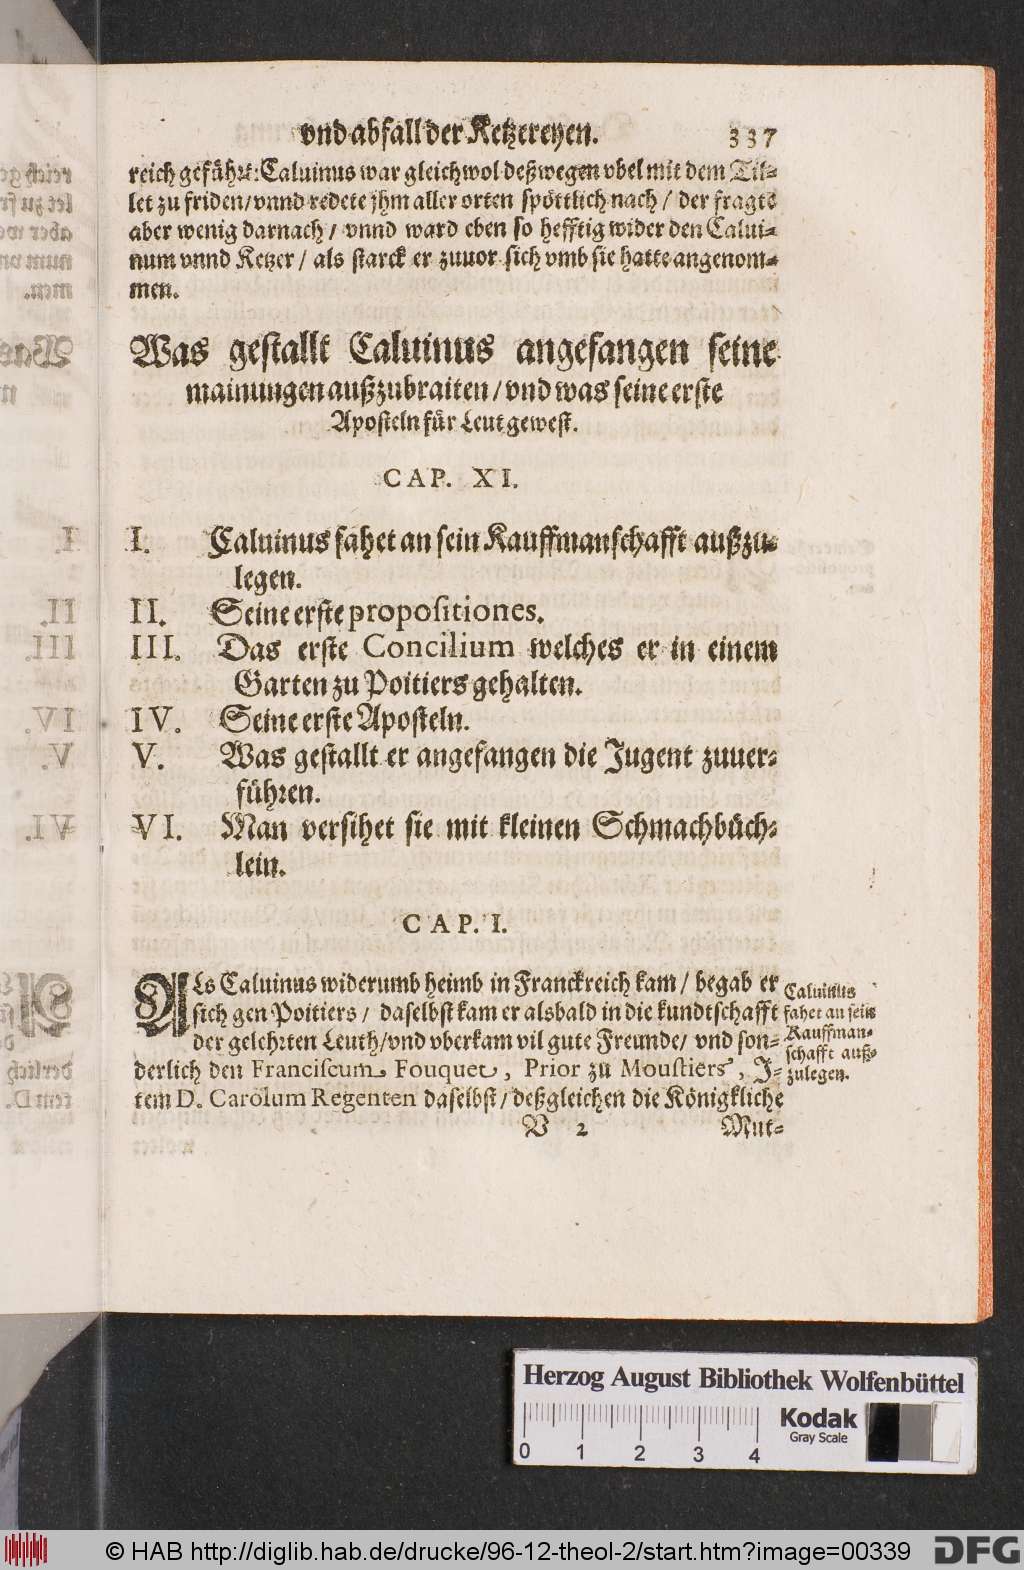 vnd abfall der Ketzereyen. 337
reich geführt: Caluinus war gleichwol deßwegen vbel mit dem Til-
let zu friden/ vnnd redete jhm aller orten spöttlich nach/ der fragte
aber wenig darnach/ vnnd ward eben so hefftig wider den Calui-
num vnnd Ketzer/ als starck er zuuor sich vmb sie hatte angenom-
men.
Was gestallt Caluinus angefangen seine
mainungen außzubraiten/ vnd was seine erste
Aposteln für Leut gewest.
CAP. XI.
I. Caluinus fahet an sein Kauffmanschafft außzu-
legen.
II. Seine erste propositiones.
III. Das erste Concilium welches er in einem
Garten zu Poitiers gehalten.
IV. Seine erste Aposteln.
V. Was gestallt er angefangen die Jugent zuuer-
führen.
VI. Man versihet sie mit kleinen Schmachbüch-
lein.
CAP. I.
ALs Caluinus widerumb heimb in Franckreich kam/ begab er
sich gen Poitiers/ daselbst kam er alsbald in die kundtschafft
der gelehrten Leuth/ vnd vberkam vil gute Freunde/ vnd son-
derlich den Franciscum Fouquet, Prior zu Moustiers, I-
tem D. Carolum Regenten daselbst/ deßgleichen die Königkliche
Caluinus
fahet an sein
Kauffman-
schafft auß-
zulegen.
V 2 Mut-
Herzog August Bibliothek Wolfenbüttel
0 1 2 3 4
Kodak
Gray Scale
© HAB http://diglib.hab.de/drucke/96-12-theol-2/start.htm?image=00339
DFG